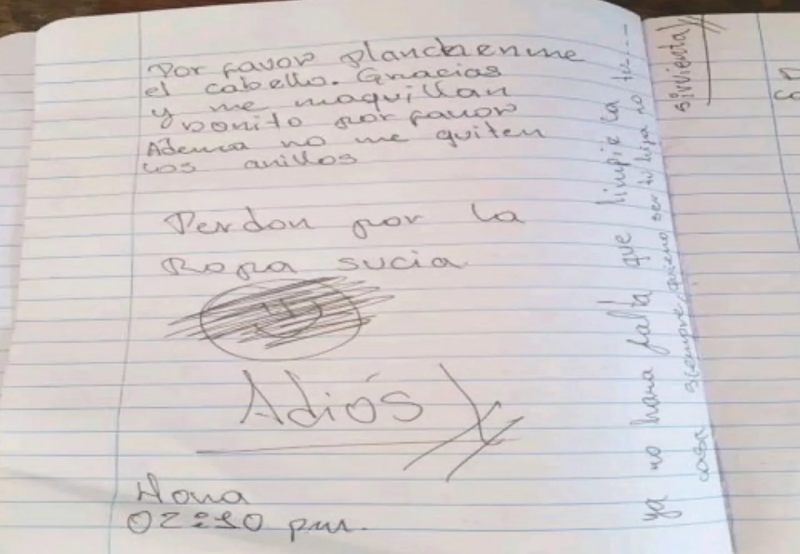 Por favor planchenme
el cabello. Gracias
y me maquillan
bonito por favor
Ademas no me quiten
los anillos
Perdon por la
Ropa sucia
Adiós
Hora
02:10 pm.
ya no hara falta que limpie la tu....
casa siempre quieno ser tu hija no tu
sirvienta